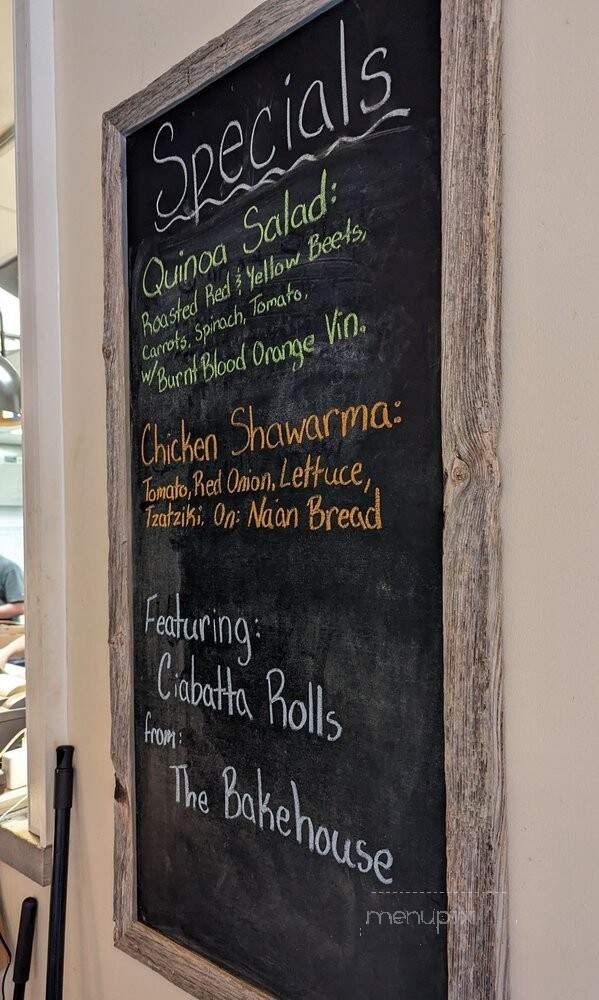 Specials
Quinoa Salad:
Roasted Red & Yellow Beets,
Carrots, Spinach, Tomato,
w/Burnt Blood Orange Vin.
Chicken Shawarma:
Tomato, Red Onion, Lettuce,
Tzatziki, On: Naan Bread
Featuring:
Ciabatta Rolls
from:
The Bakehouse
menupix